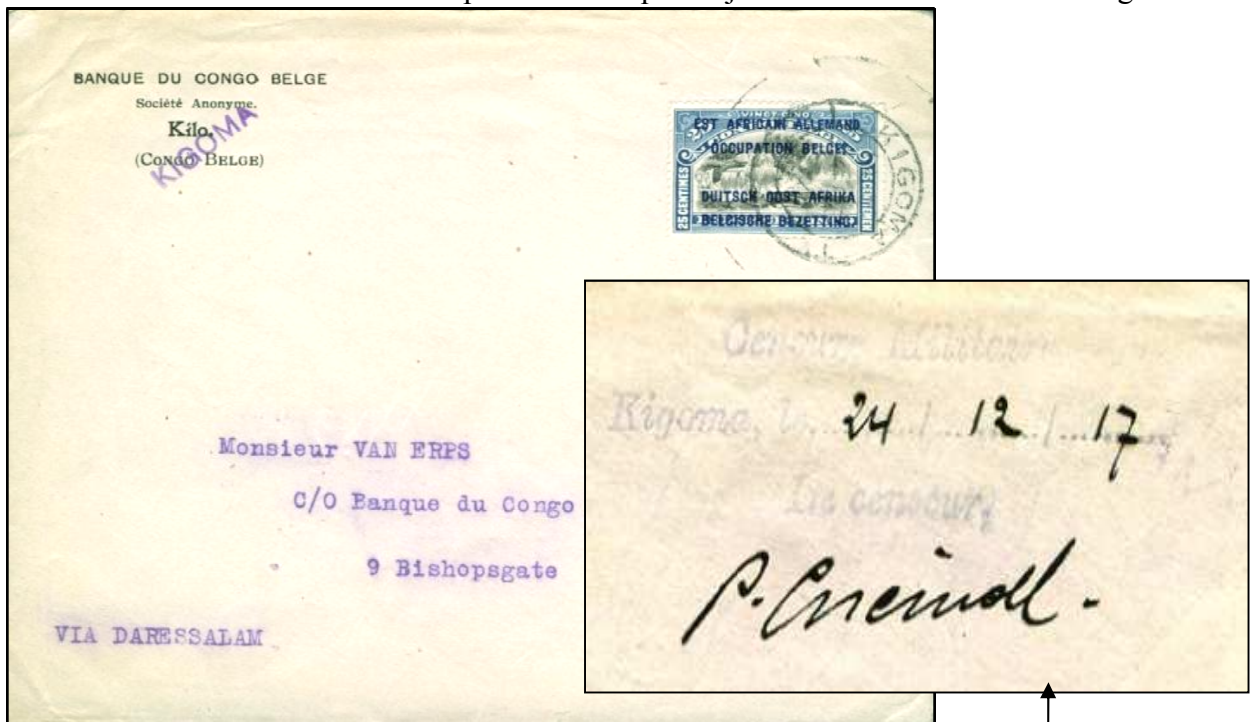 BANQUE DU CONGO BELGE
Société Anonyme.
Kilo.
(CONGO BELGE)
KIGOMA
25 CENTIMES
EST AFRICAIN ALLEMAND
OCCUPATION BELGE
DUITSCH OOST AFRIKA
BELGISCHE BEZETTING
25 CENTIEMEN
KIGOMA
Monsieur VAN ERPS
C/O Banque du Congo
9 Bishopsgate
VIA DARESSALAM
Censure Militaire
Kigoma, le 24 / 12 / 17
Le censeur,
P.